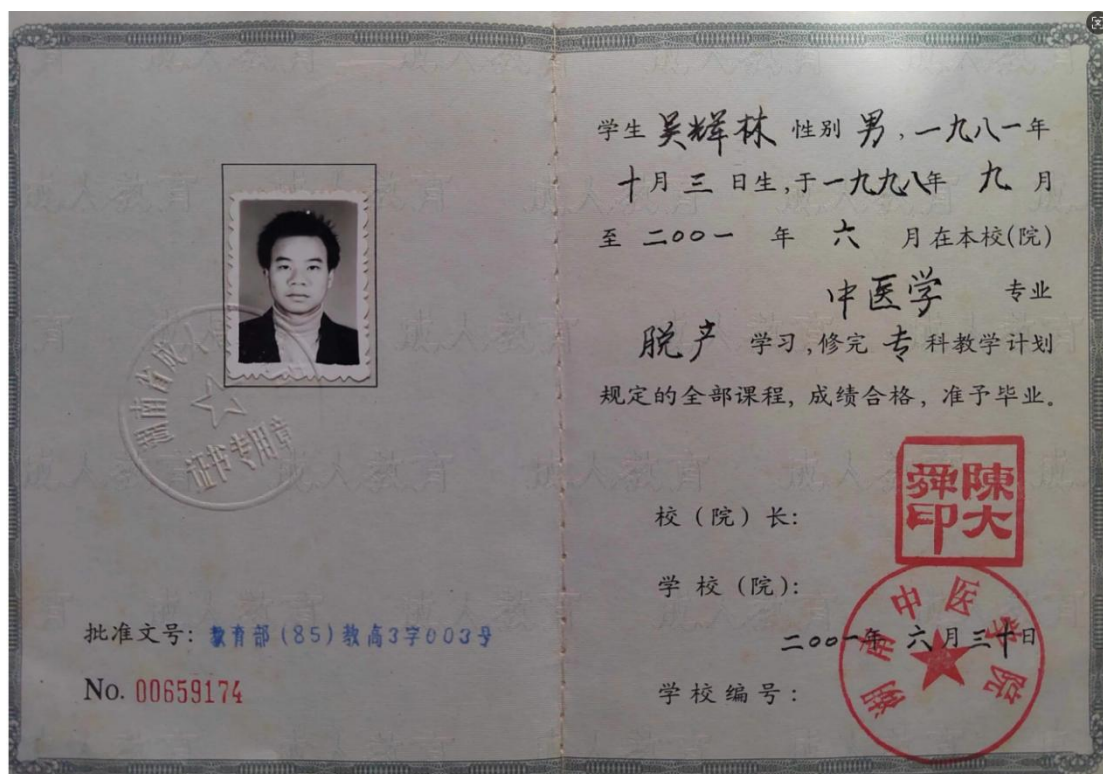 湖南省成人
证书专用章
批准文号：教育部(85)教高3字003号
No. 00659174
学生 吴辉林 性别 男，一九八一年
十月 三 日生，于一九九八年 九 月
至 二〇〇一 年 六 月在本校(院)
中医学 专业
脱产 学习，修完 专 科教学计划
规定的全部课程，成绩合格，准予毕业。
校（院）长：
陳大舜印
学校（院）：
湖南中医学院
二〇〇一年六月三十日
学校编号：
成人教育